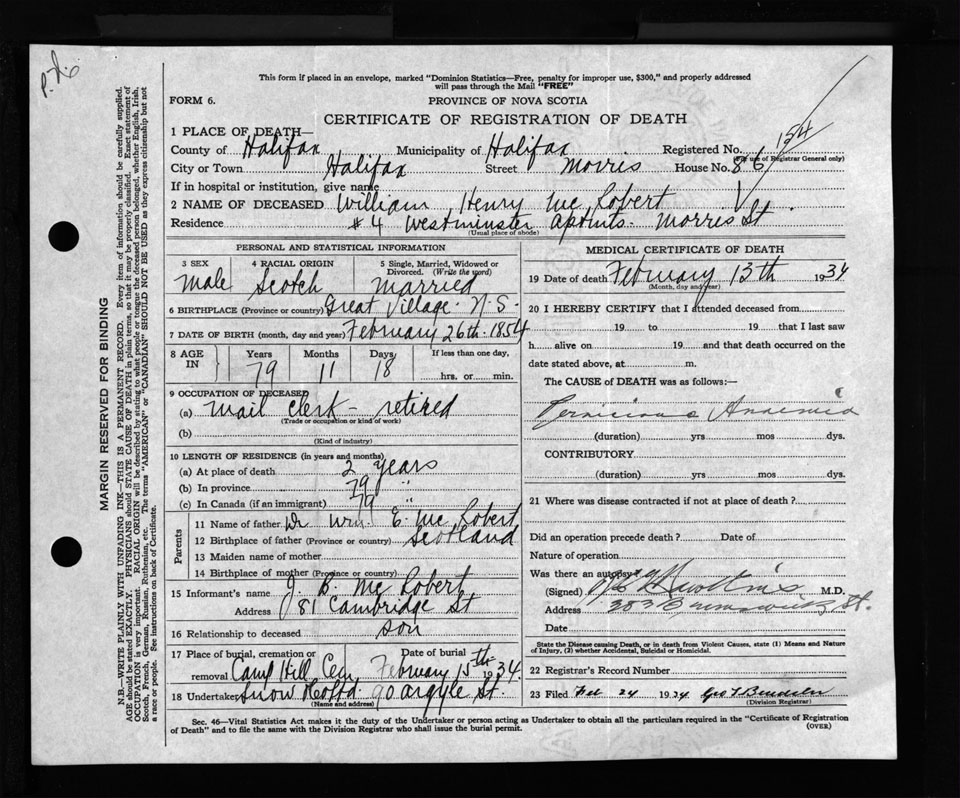 This form if placed in an envelope, marked "Dominion Statistics—Free, penalty for improper use, $300," and properly addressed
will pass through the Mail "FREE"
FORM 6. PROVINCE OF NOVA SCOTIA
CERTIFICATE OF REGISTRATION OF DEATH
1 PLACE OF DEATH—
County of Halifax Municipality of Halifax Registered No. 154
(For use of Registrar General only)
City or Town Halifax Street Morris House No. 86
If in hospital or institution, give name
2 NAME OF DECEASED William Henry Mc Robert
Residence #4 Westminster Aptmts. Morris St.
(Usual place of abode)
PERSONAL AND STATISTICAL INFORMATION
3 SEX 4 RACIAL ORIGIN 5 Single, Married, Widowed or
Divorced. (Write the word)
Male Scotch Married
6 BIRTHPLACE (Province or country) Great Village. N.S.
7 DATE OF BIRTH (month, day and year) February 26th. 1854
8 AGE IN Years Months Days If less than one day,
79 11 18 hrs. or min.
9 OCCUPATION OF DECEASED
(a) Mail Clerk - retired
(Trade or occupation or kind of work)
(b)
(Kind of industry)
10 LENGTH OF RESIDENCE (in years and months)
(a) At place of death 2 years
(b) In province 79 "
(c) In Canada (if an immigrant) 79 "
Parents
11 Name of father Dr Wm. E. Mc Robert
12 Birthplace of father (Province or country) Scotland
13 Maiden name of mother
14 Birthplace of mother (Province or country)
15 Informant's name J. B. Mc Robert
Address 81 Cambridge St
16 Relationship to deceased son
17 Place of burial, cremation or Date of burial
removal Camp Hill Cem February 15th 1934.
18 Undertaker Snow & Co Ltd. 90 Argyle St.
(Name and address)
MEDICAL CERTIFICATE OF DEATH
19 Date of death February 13th 1934
(Month, day and year)
20 I HEREBY CERTIFY that I attended deceased from
19 to 19 that I last saw
h alive on 19 and that death occurred on the
date stated above, at m.
The CAUSE of DEATH was as follows:—
Pernicious Anaemia
(duration) yrs mos dys.
CONTRIBUTORY
(duration) yrs mos dys.
21 Where was disease contracted if not at place of death?
Did an operation precede death? Date of
Nature of operation
Was there an autopsy?
(Signed) M.D.
Address St.
Date
State the Disease causing Death, or in death from Violent Causes, state (1) Means and Nature
of Injury, (2) whether Accidental, Suicidal or Homicidal.
22 Registrar's Record Number
23 Filed Feb 24 1934 Geo
(Division Registrar)
Sec. 46—Vital Statistics Act makes it the duty of the Undertaker or person acting as Undertaker to obtain all the particulars required in the "Certificate of Registration
of Death" and to file the same with the Division Registrar who shall issue the burial permit. (OVER)
MARGIN RESERVED FOR BINDING
N.B.—WRITE PLAINLY WITH UNFADING INK—THIS IS A PERMANENT RECORD. Every item of information should be carefully supplied.
AGE should be stated EXACTLY. PHYSICIANS should STATE CAUSE OF DEATH in plain terms, so that it may be properly classified. Exact statement of
OCCUPATION is very important. RACIAL ORIGIN will be described by stating to what people or tongue the deceased person belonged, whether English, Irish,
Scotch, French, German, Russian, Ruthenian, etc. The terms "AMERICAN" or "CANADIAN" SHOULD NOT BE USED as they express citizenship but not
a race or people. See instructions on back of Certificate.